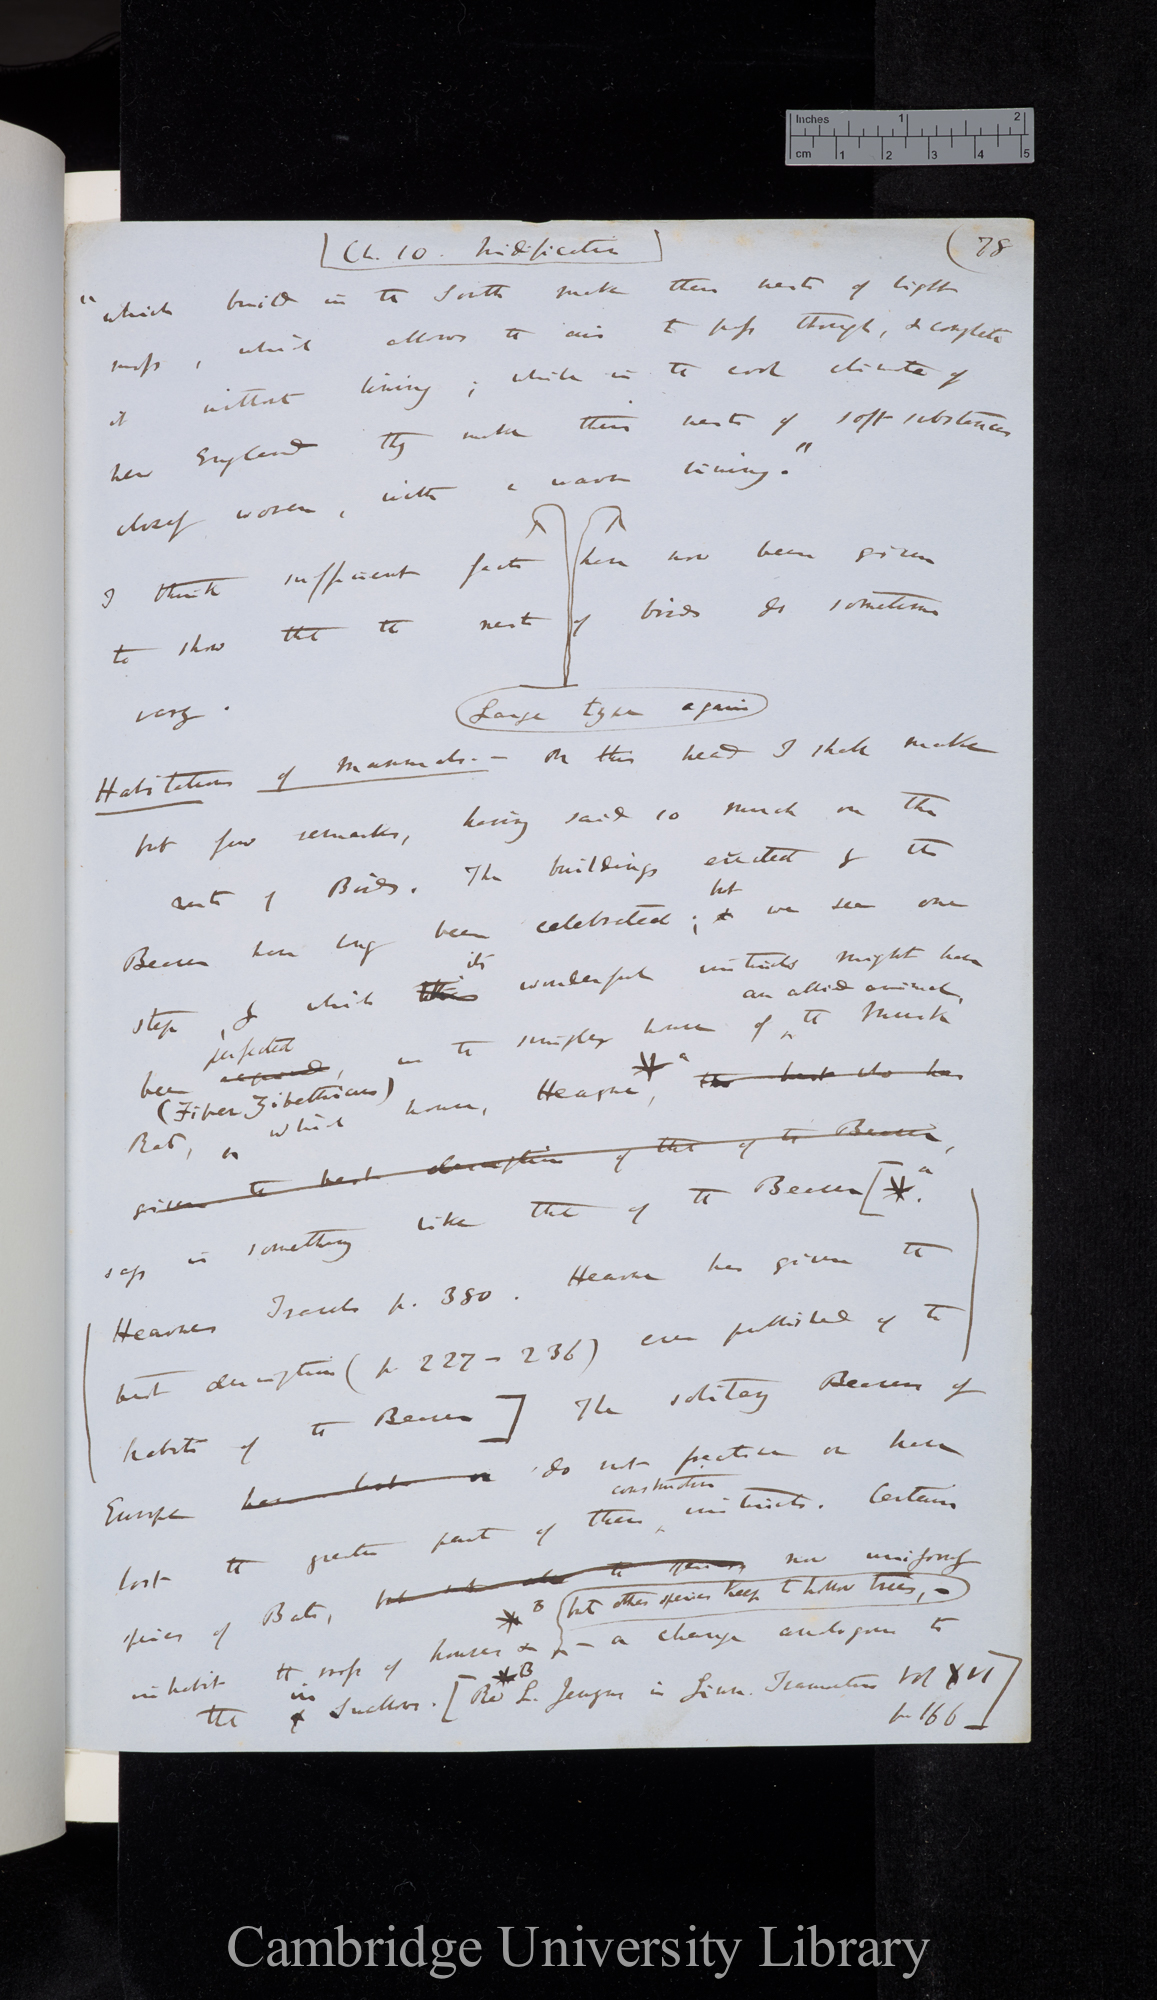 Inches 1 2
cm 1 2 3 4 5
Ch. 10. Nidification
(78
"which build in the South make their nests of light
moss, which allows the air to pass through, & complete
it without lining; while in the cool climate of
New England they make their nests of soft substances
closely woven, with a warm lining."
I think sufficient facts have now been given
to show that the nests of birds do sometimes
vary.
Large type again
Habitations of Mammals.— On this head I shall make
but few remarks, having said so much on the
nests of Birds. The buildings erected by the
but
Beaver have long been celebrated; & we see one
its
step, by which wonderful instincts might have
perfected an allied animal,
been, in the simpler house of the Musk
(Fiber Zibethicus)
Rat, on which house, Hearne,* a the best who has
given the best description of that of the Beaver,
says is something like that of the Beaver [* a.
Hearnes Travels p. 380. Hearne has given the
best description (p 227–236) ever published of the
habits of the Beaver] The solitary Beavers of
Europe do not practise or have
constructive
lost the greater part of their instincts. Certain
species of Bats, now uniformly
but other species keep to hollow trees,—
inhabit the roofs of houses * B — a change analogous to
the in Swallows. [* B Rev L. Jenyns in Linn. Transactions vol XVI
p. 166]
Cambridge University Library